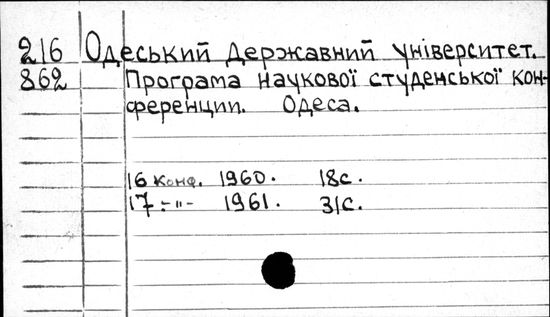 216 Одеський державний університет.
862 Програма наукової студенської кон-
ференции. Одеса.
16 конф. 1960. 18с.
17 -"- 1961. 31с.